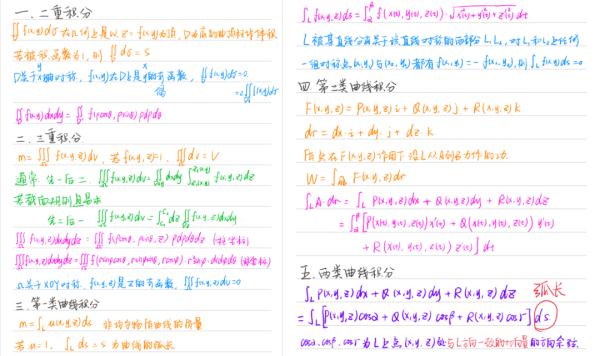 一.二重积分
∬f(x,y)dσ 在几何上是以 z=f(x,y)为顶, D为底的曲顶柱体体积
若被积函数为1, 则∬dσ=S
D关于x轴对称, f(x,y)在D上是y的奇函数, ∬f(x,y)dσ=0.
y x
偶 =2∬f(x,y)dσ
∬f(x,y)dxdy=∬f(ρcosθ, ρsinθ)ρdρdθ
二.三重积分
m=∭f(x,y,z)dv, 若f(x,y,z)=1, ∭dv=V
通常 先一后二. ∭f(x,y,z)dv=∬dxdy∫f(x,y,z)dz
若截面规则且易求
先二后一 ∭f(x,y,z)dv=∫dz∬f(x,y,z)dxdy
∭f(x,y,z)dxdydz=∭f(ρcosθ, ρsinθ, z)ρdρdθdz (柱坐标)
∭f(x,y,z)dxdydz=∭f(rsinφcosθ, rsinφsinθ, rcosφ)·r²sinφ·drdφdθ (球坐标)
Ω关于XOY对称, f(x,y,z)是z的奇函数, ∭f(x,y,z)dv=0
三.第一类曲线积分
m=∫_L u(x,y,z)ds 非均匀物质曲线的质量
若u=1, ∫_L ds=s 为曲线的弧长
∫_L f(x,y,z)ds=∫_α^β f(x(t), y(t), z(t))·√(x'(t)²+y'(t)²+z'(t)²) dt
L被某直线分为关于该直线对称的两部分L₁ L₂, 对L₁和L₂上任何
一组对称点(x,y)与(x₁,y₁)都有f(x,y)=-f(x₁,y₁), 则∫_L f(x,y)ds=0
四.第二类曲线积分
F(x,y,z)=P(x,y,z)i+Q(x,y,z)j+R(x,y,z)k
dr=dx·i+dy·j+dz·k
质点在F(x,y,z)作用下沿L从A到B力作的功.
W=∫_AB F(x,y,z)dr
∫_L A·dr=∫_L P(x,y,z)dx+Q(x,y,z)dy+R(x,y,z)dz
=∫_α^β[P(x(t),y(t),z(t))x'(t)+Q(x(t),y(t),z(t))y'(t)
+R(x(t),y(t),z(t))z'(t)]dt
五.两类曲线积分
弧长
∫_L P(x,y,z)dx+Q(x,y,z)dy+R(x,y,z)dz
=∫_L[P(x,y,z)cosα+Q(x,y,z)cosβ+R(x,y,z)cosγ]ds
cosα.cosβ.cosγ为L上点(x,y,z)处与L方向一致的切向量的方向余弦.